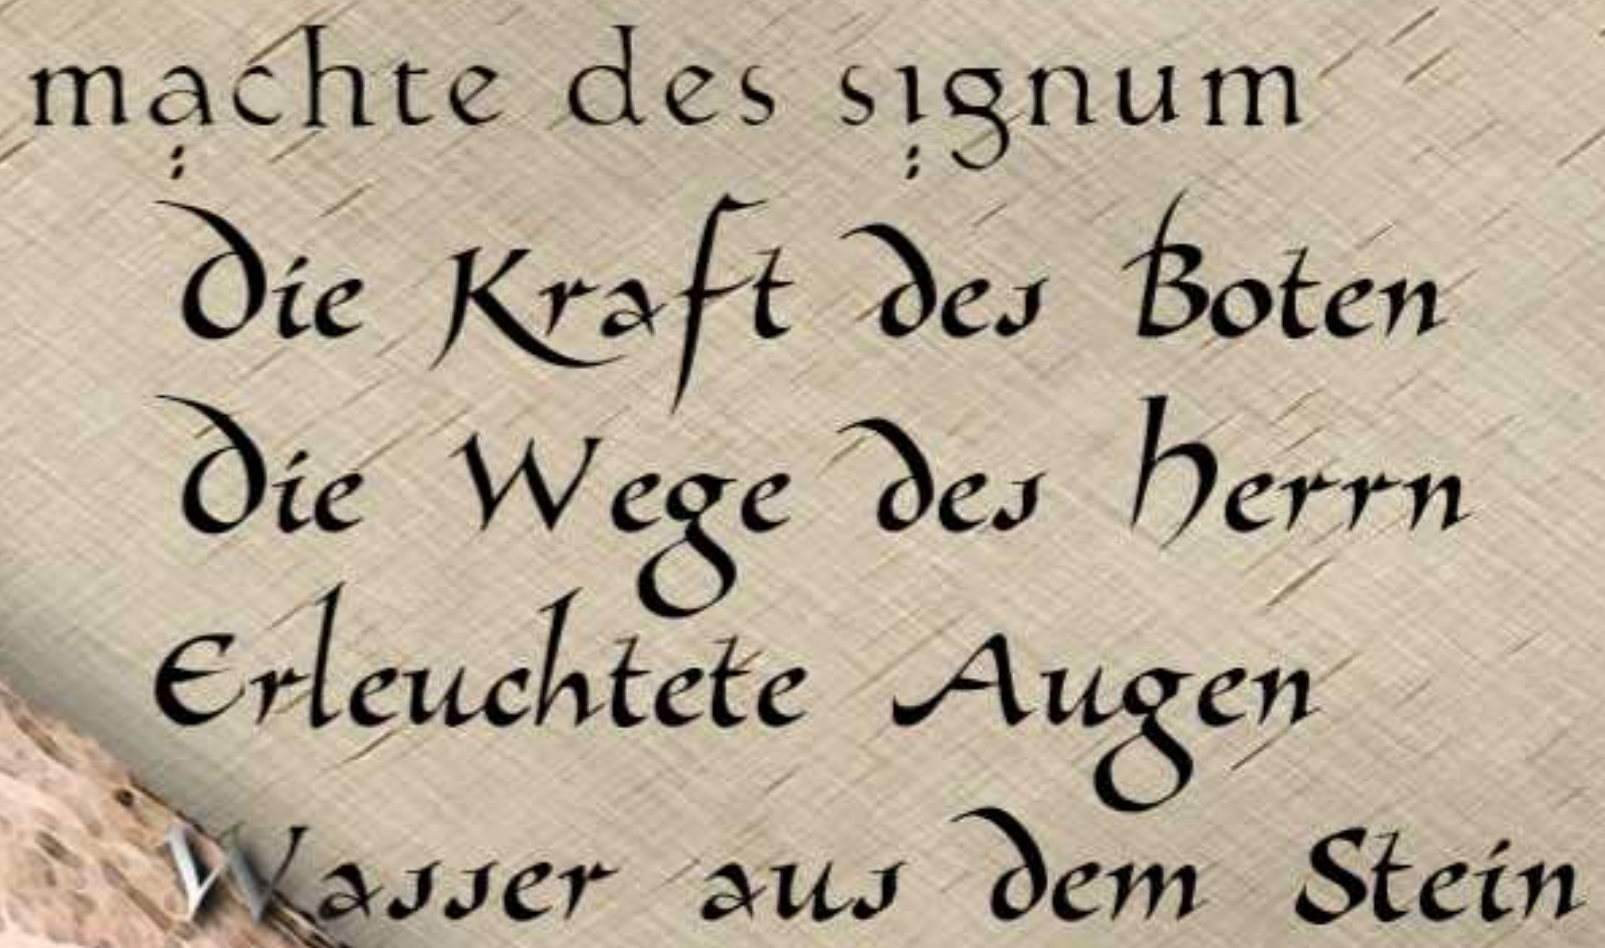 machte des signum
Die Kraft des Boten
Die Wege des Herrn
Erleuchtete Augen
Wasser aus dem Stein